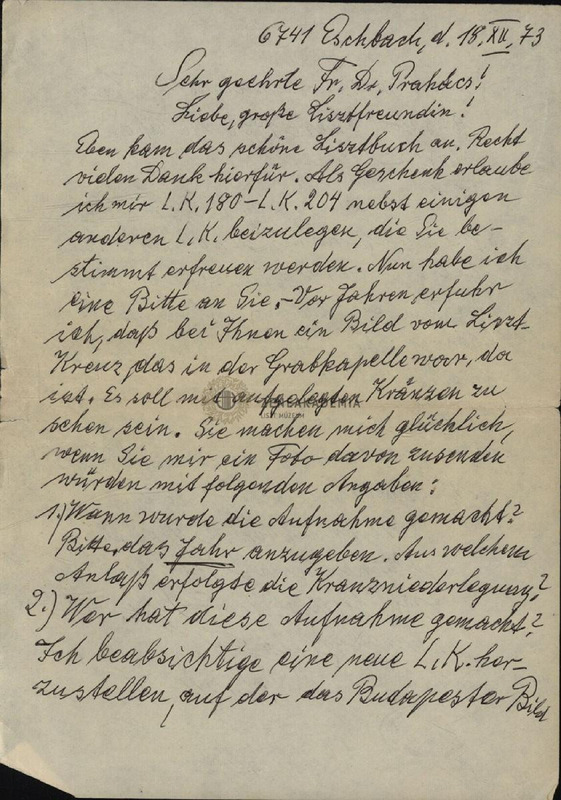 6741 Eschbach, d. 18. XII. 73
Sehr geehrte Fr. Dr. Prahács!
Liebe, große Lisztfreundin!
Eben kam das schöne Lisztbuch an. Recht
vielen Dank hierfür. Als Geschenk erlaube
ich mir L.K. 180 – L.K. 204 nebst einigen
anderen L.K. beizulegen, die Sie be-
stimmt erfreuen werden. Nun habe ich
eine Bitte an Sie. – Vor Jahren erfuhr
ich, daß bei Ihnen ein Bild vom Liszt-
Kreuz, das in der Grabkapelle war, da
ist. Es soll mit aufgelegten Kränzen zu
sehen sein. Sie machen mich glücklich,
wenn Sie mir ein Foto davon zusenden
würden mit folgenden Angaben:
1.) Wann wurde die Aufnahme gemacht?
Bitte, das Jahr anzugeben. Aus welchem
Anlaß erfolgte die Kranzniederlegung?
2.) Wer hat diese Aufnahme gemacht?
Ich beabsichtige eine neue L.K. her-
zustellen, auf der das Budapester Bild
ZENEAKADÉMIA
LISZT MÚZEUM